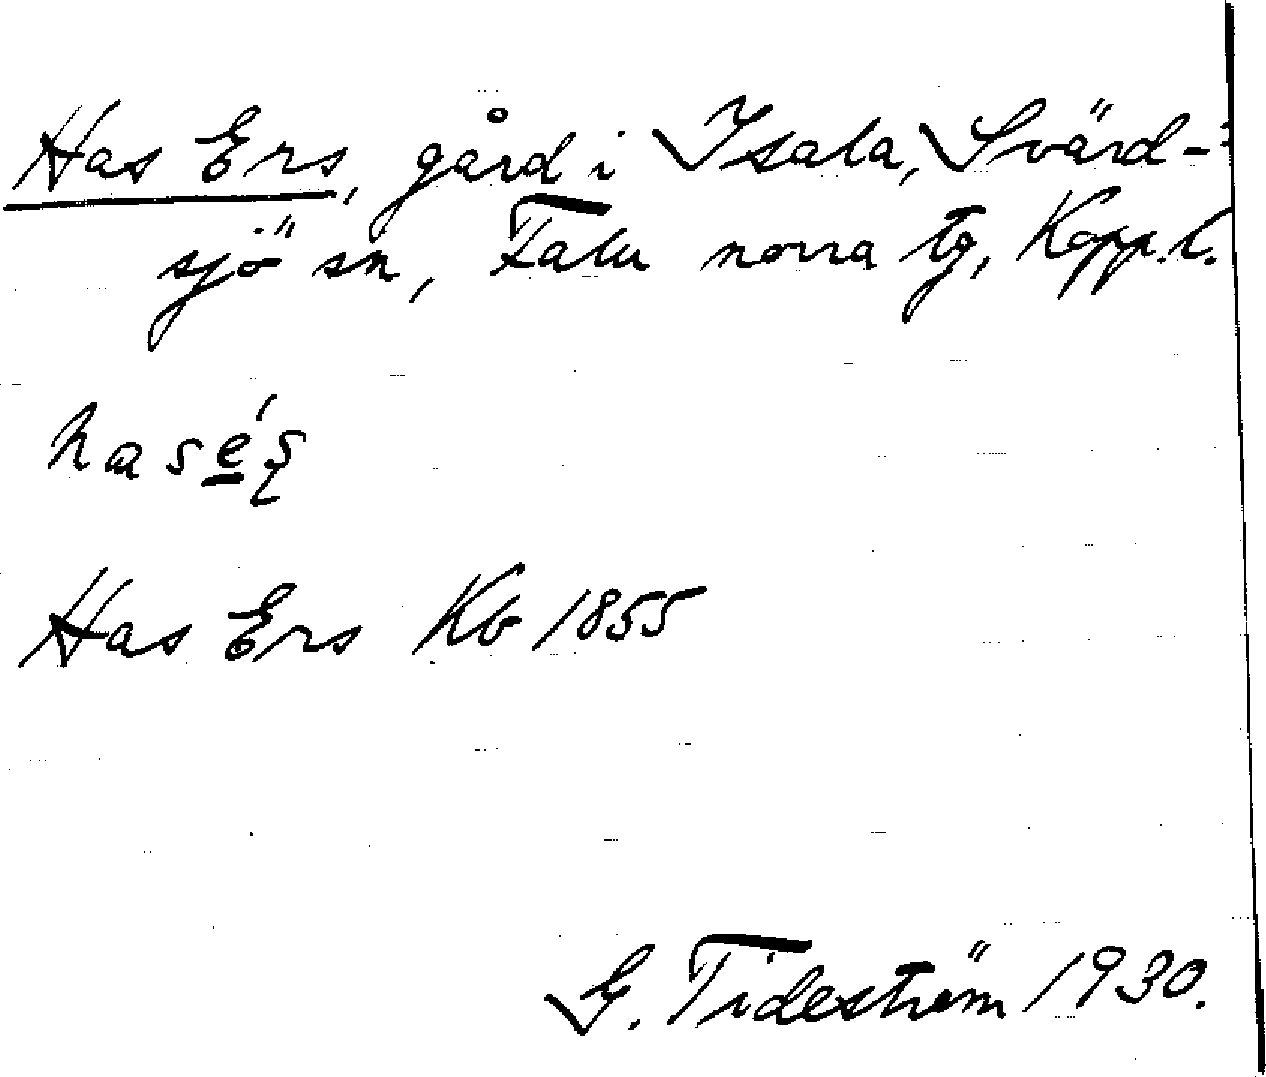 Has Ers, gård i Isala, Svärd-
sjö sn, Falu norra tg, Kopp. l.
hasés̨
Has Ers Kb 1855
G. Tideström 1930.